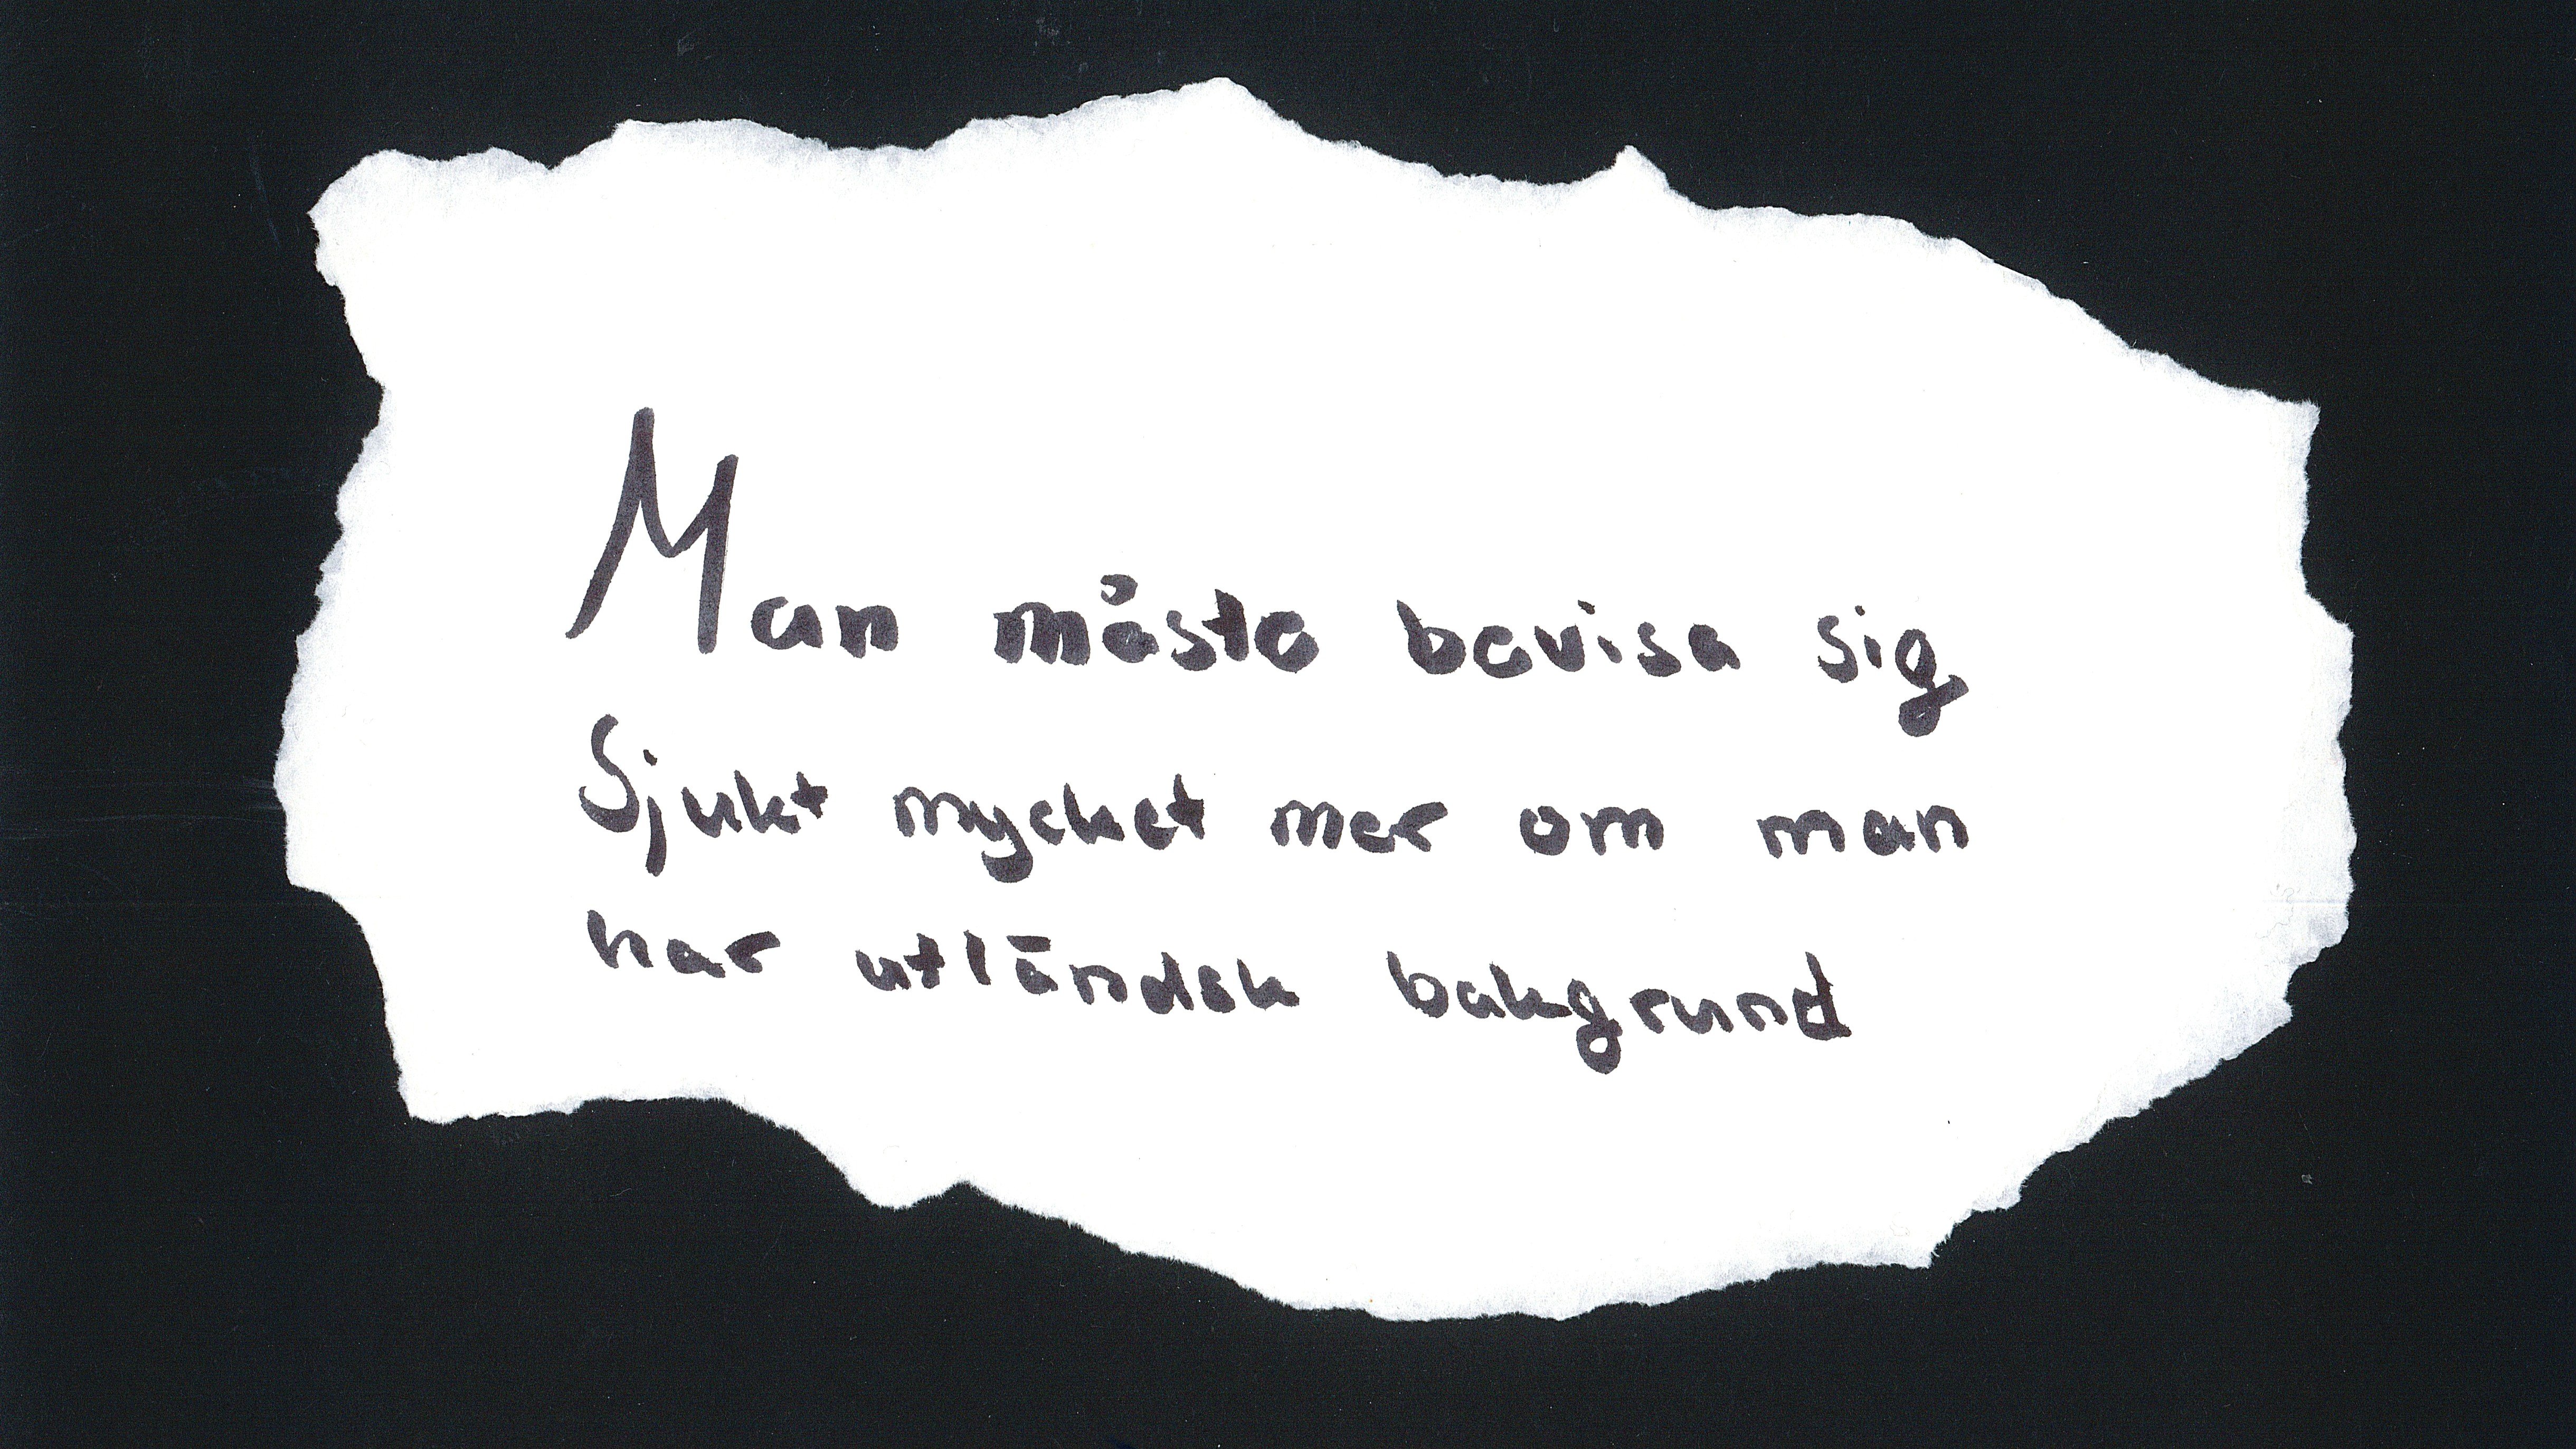 Man måste bevisa sig
Sjukt mycket mer om man
har utländsk bakgrund